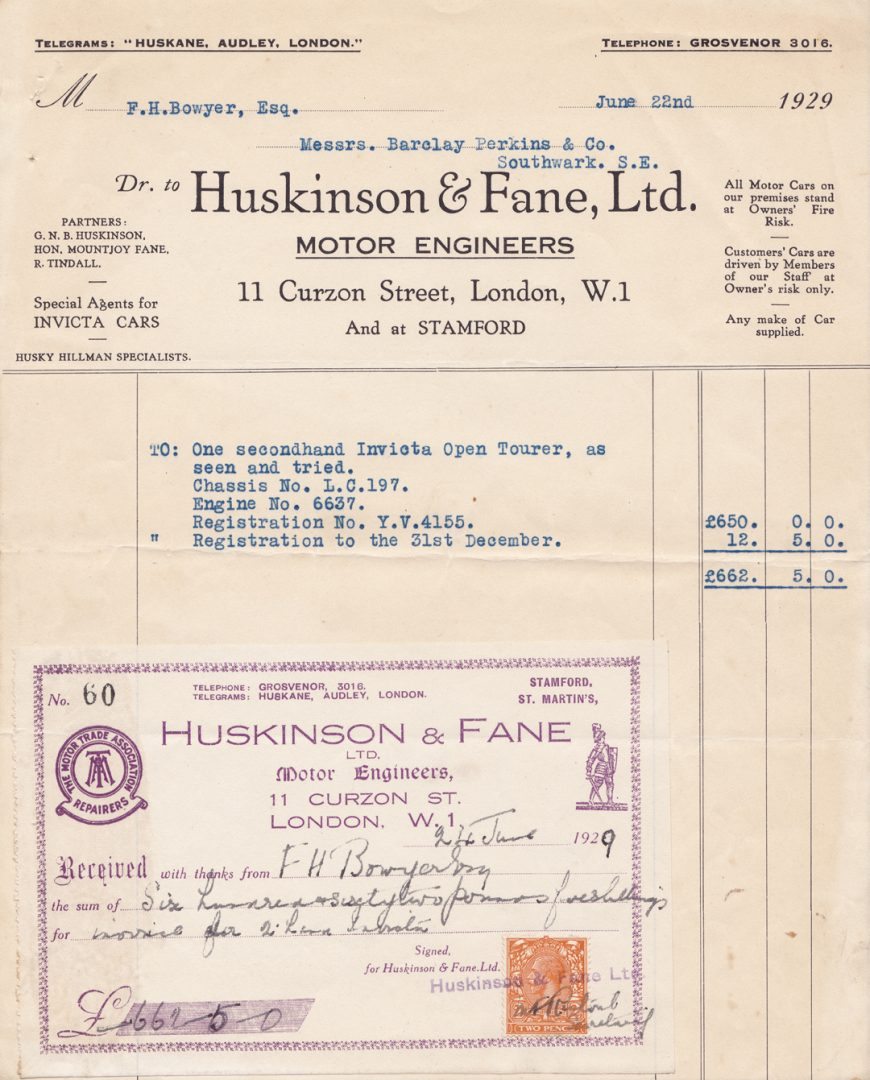 TELEGRAMS: "HUSKANE, AUDLEY, LONDON."
TELEPHONE: GROSVENOR 3016.
M F.H.Bowyer, Esq.
June 22nd 1929
Messrs. Barclay Perkins & Co.
Southwark. S.E.
Dr. to Huskinson & Fane, Ltd.
MOTOR ENGINEERS
11 Curzon Street, London, W.1
And at STAMFORD
PARTNERS:
G. N. B. HUSKINSON,
HON. MOUNTJOY FANE,
R. TINDALL.
Special Agents for
INVICTA CARS
HUSKY HILLMAN SPECIALISTS.
All Motor Cars on
our premises stand
at Owners' Fire
Risk.
Customers' Cars are
driven by Members
of our Staff at
Owner's risk only.
Any make of Car
supplied.
TO: One secondhand Invicta Open Tourer, as
seen and tried.
Chassis No. L.C.197.
Engine No. 6637.
Registration No. Y.V.4155. £650. 0. 0.
" Registration to the 31st December. 12. 5. 0.
£662. 5. 0.
No. 60
TELEPHONE: GROSVENOR, 3016.
TELEGRAMS: HUSKANE, AUDLEY, LONDON.
STAMFORD,
ST. MARTIN'S,
THE MOTOR TRADE ASSOCIATION
MTA
REPAIRERS
HUSKINSON & FANE
LTD.
Motor Engineers,
11 CURZON ST.
LONDON, W.1,
24 June 1929
Received with thanks from F H Bowyer Esq
the sum of Six hundred & sixty two pounds five shillings
for invoice for 2nd hand Invicta
Signed,
for Huskinson & Fane. Ltd.
Huskinson & Fane Ltd.
£ 662-5-0
TWO PENCE